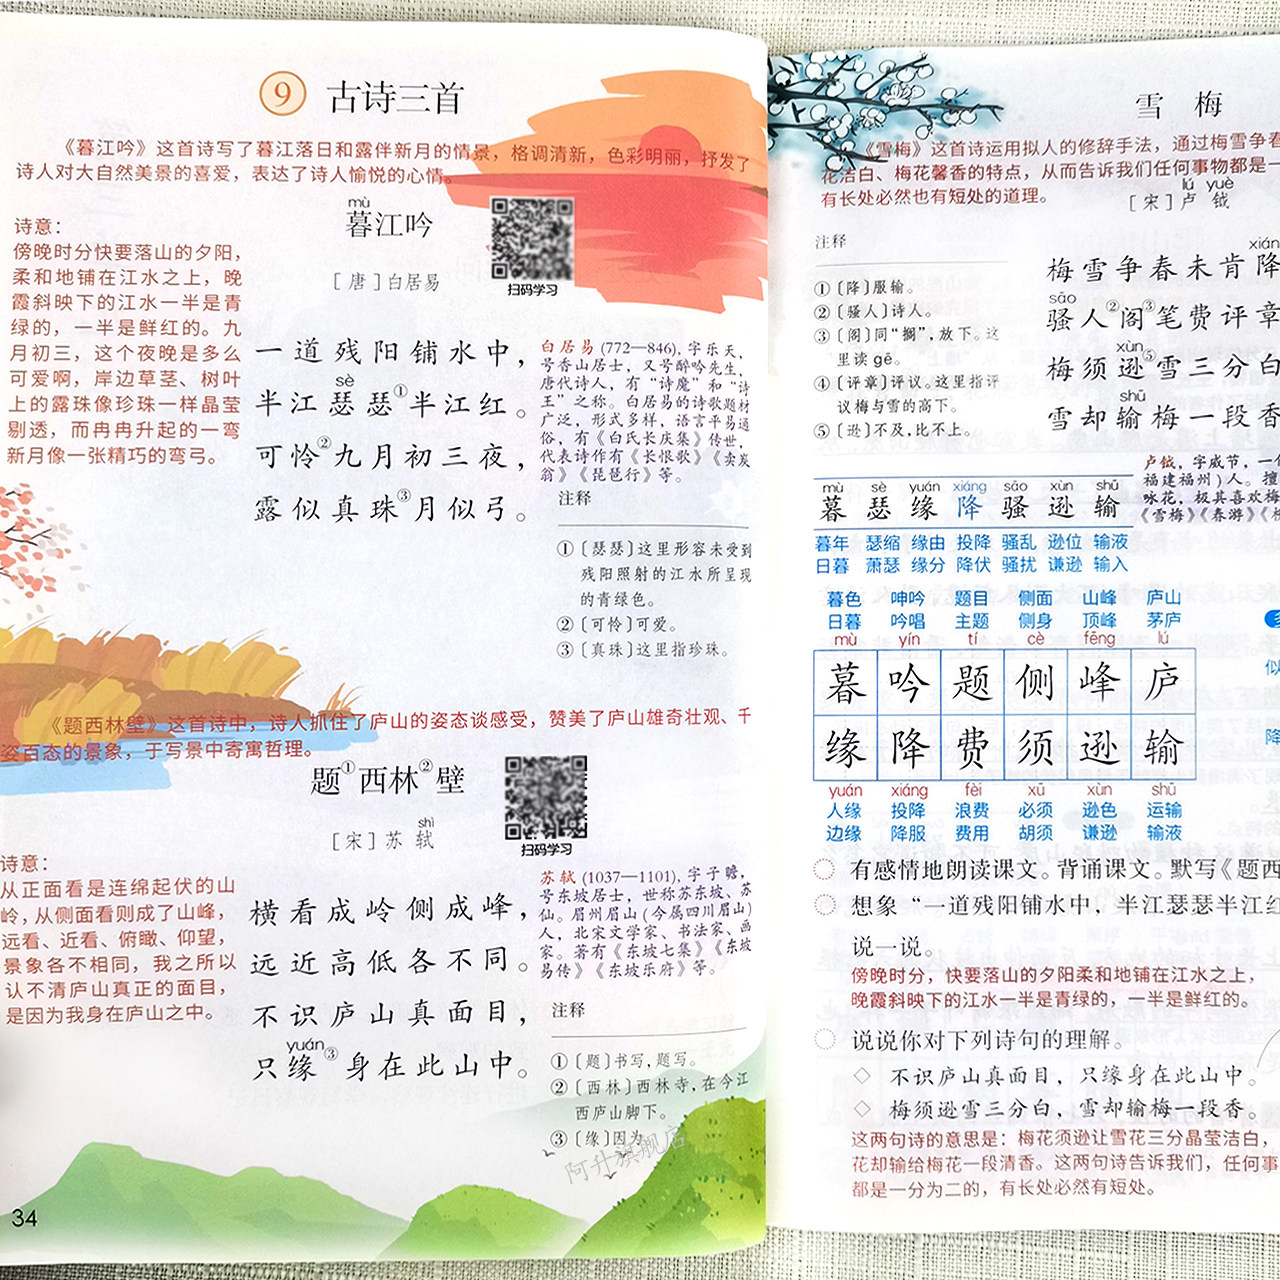 9 古诗三首
《暮江吟》这首诗写了暮江落日和露伴新月的情景，格调清新，色彩明丽，抒发了
诗人对大自然美景的喜爱，表达了诗人愉悦的心情。
mù
暮江吟
[唐]白居易
扫码学习
诗意：
傍晚时分快要落山的夕阳，
柔和地铺在江水之上，晚
霞斜映下的江水一半是青
绿的，一半是鲜红的。九
月初三，这个夜晚是多么
可爱啊，岸边草茎、树叶
上的露珠像珍珠一样晶莹
剔透，而冉冉升起的一弯
新月像一张精巧的弯弓。
一道残阳铺水中，
sè
半江瑟瑟①半江红。
可怜②九月初三夜，
露似真珠③月似弓。
白居易(772—846)，字乐天，
号香山居士，又号醉吟先生，
唐代诗人，有“诗魔”和“诗
王”之称。白居易的诗歌题材
广泛，形式多样，语言平易通
俗，有《白氏长庆集》传世，
代表诗作有《长恨歌》《卖炭
翁》《琵琶行》等。
注释
①〔瑟瑟〕这里形容未受到
残阳照射的江水所呈现
的青绿色。
②〔可怜〕可爱。
③〔真珠〕这里指珍珠。
《题西林壁》这首诗中，诗人抓住了庐山的姿态谈感受，赞美了庐山雄奇壮观、千
姿百态的景象，于写景中寄寓哲理。
题①西林②壁
shì
[宋]苏轼
扫码学习
诗意：
从正面看是连绵起伏的山
岭，从侧面看则成了山峰，
远看、近看、俯瞰、仰望，
景象各不相同，我之所以
认不清庐山真正的面目，
是因为我身在庐山之中。
横看成岭侧成峰，
远近高低各不同。
不识庐山真面目，
yuán
只缘③身在此山中。
苏轼(1037—1101)，字子瞻，
号东坡居士，世称苏东坡、苏
仙。眉州眉山(今属四川眉山)
人，北宋文学家、书法家、画
家。著有《东坡七集》《东坡
易传》《东坡乐府》等。
注释
①〔题〕书写，题写。
②〔西林〕西林寺，在今江
西庐山脚下。
③〔缘〕因为。
阿升旗舰店
34
雪梅
《雪梅》这首诗运用拟人的修辞手法，通过梅雪争春
花洁白、梅花馨香的特点，从而告诉我们任何事物都是一
有长处必然也有短处的道理。
lú yuè
[宋]卢钺
注释
①〔降〕服输。
②〔骚人〕诗人。
③〔阁〕同“搁”，放下。这
里读gē。
④〔评章〕评议。这里指评
议梅与雪的高下。
⑤〔逊〕不及，比不上。
xiáng
梅雪争春未肯降
sāo
骚人②阁③笔费评章
xùn
梅须逊⑤雪三分白
shū
雪却输梅一段香
卢钺，字威节，一
福建福州)人。擅
咏花，极其喜欢梅
《雪梅》《春游》《
mù sè yuán xiáng sāo xùn shū
暮 瑟 缘 降 骚 逊 输
暮年 瑟缩 缘由 投降 骚乱 逊位 输液
日暮 萧瑟 缘分 降伏 骚扰 谦逊 输入
暮色 呻吟 题目 侧面 山峰 庐山
日暮 吟唱 主题 侧身 顶峰 茅庐
mù yín tí cè fēng lú
暮 吟 题 侧 峰 庐
缘 降 费 须 逊 输
yuán xiáng fèi xū xùn shū
人缘 投降 浪费 必须 逊色 运输
边缘 降服 费用 胡须 谦逊 输液
似
降
有感情地朗读课文。背诵课文。默写《题西
想象“一道残阳铺水中，半江瑟瑟半江红
说一说。
傍晚时分，快要落山的夕阳柔和地铺在江水之上，
晚霞斜映下的江水一半是青绿的，一半是鲜红的。
说说你对下列诗句的理解。
◇ 不识庐山真面目，只缘身在此山中。
◇ 梅须逊雪三分白，雪却输梅一段香。
这两句诗的意思是：梅花须逊让雪花三分晶莹洁白，
花却输给梅花一段清香。这两句诗告诉我们，任何事
都是一分为二的，有长处必然有短处。